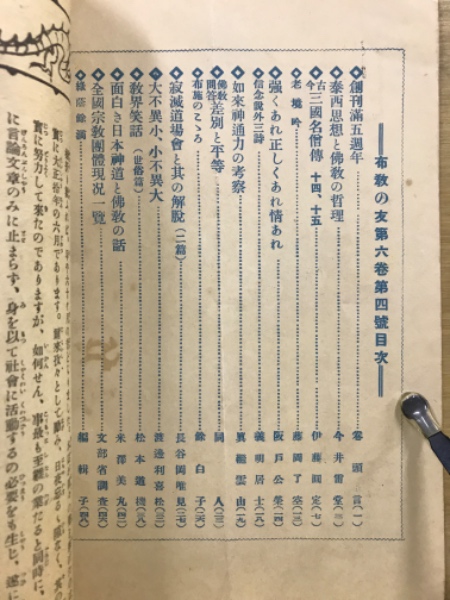 布教の友第六卷第四號目次
創刊滿五週年 卷頭言(一)
泰西思想と佛教の哲理 今井雷堂(三)
古今三國名僧傳 十四、十五 伊藤圓定(七)
老境吟 藤岡了空(一三)
強くあれ正しくあれ情あれ 阪戸公榮(一四)
信念說外三詩 義明居士(一八)
如來神通力の考察
佛教問答差別と平等 同人(二三)
布施のこゝろ 餘白子(二六)
寂滅道場會と其の解脫(二篇) 長谷岡唯見(二七)
大不異小、小不異大 渡邊利喜松(三三)
教界笑話(世俗篇) 松本道機(三八)
面白き日本神道と佛教の話 米澤美丸(四二)
全國宗教團體現況一覽 文部省調查(四六)
綠蔭餘滴 編輯子(四八)
實に努力して來たのでありますが、如何せん、事最も至難の業たると同時に、
に言論文章のみに止まらず、身を以て社會に活動するの必要をも生じ、遂に